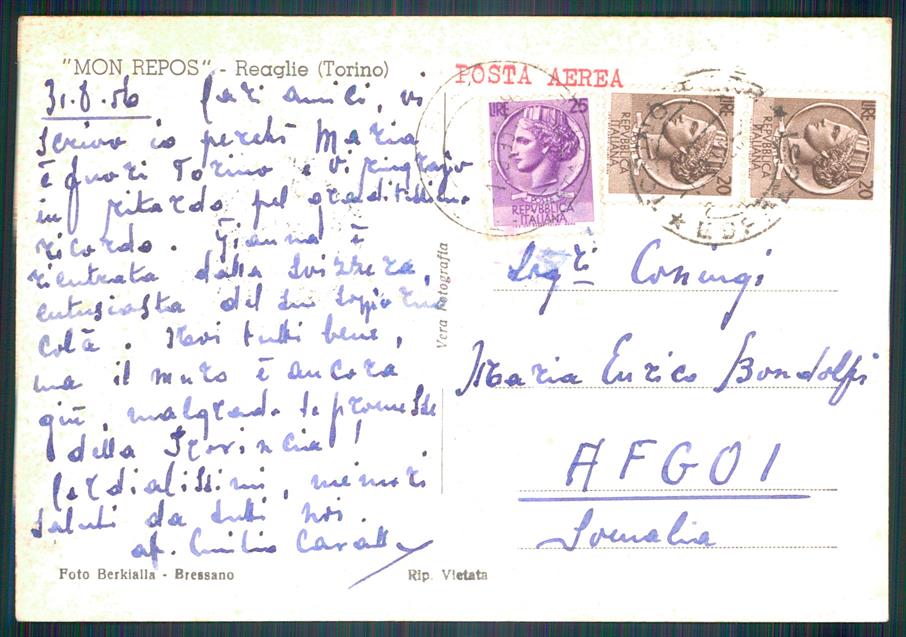 "MON REPOS" - Reaglie (Torino)
POSTA AEREA
31.8.56 Cari amici, vi
scrivo io perchè Maria
è fuori Torino e vi ringrazio
in ritardo pel graditissimo
ricordo. Gianna è
rientrata dalla Svizzera,
entusiasta del suo soggiorno
colà. Noi tutti bene,
ma il muro è ancora
giù, malgrado le promesse
della Provincia!
Cordialissimi, memori
saluti da tutti noi.
af. Emilio
LIRE 25
POSTE
REPVBBLICA
ITALIANA
LIRE 20
REPVBBLICA
ITALIANA
LIRE 20
REPVBBLICA
ITALIANA
Vera Fotografia
Sigri Coniugi
Maria Enrico Bondolfi
AFGOI
Somalia
Foto Berkialla - Bressano
Rip. Vietata